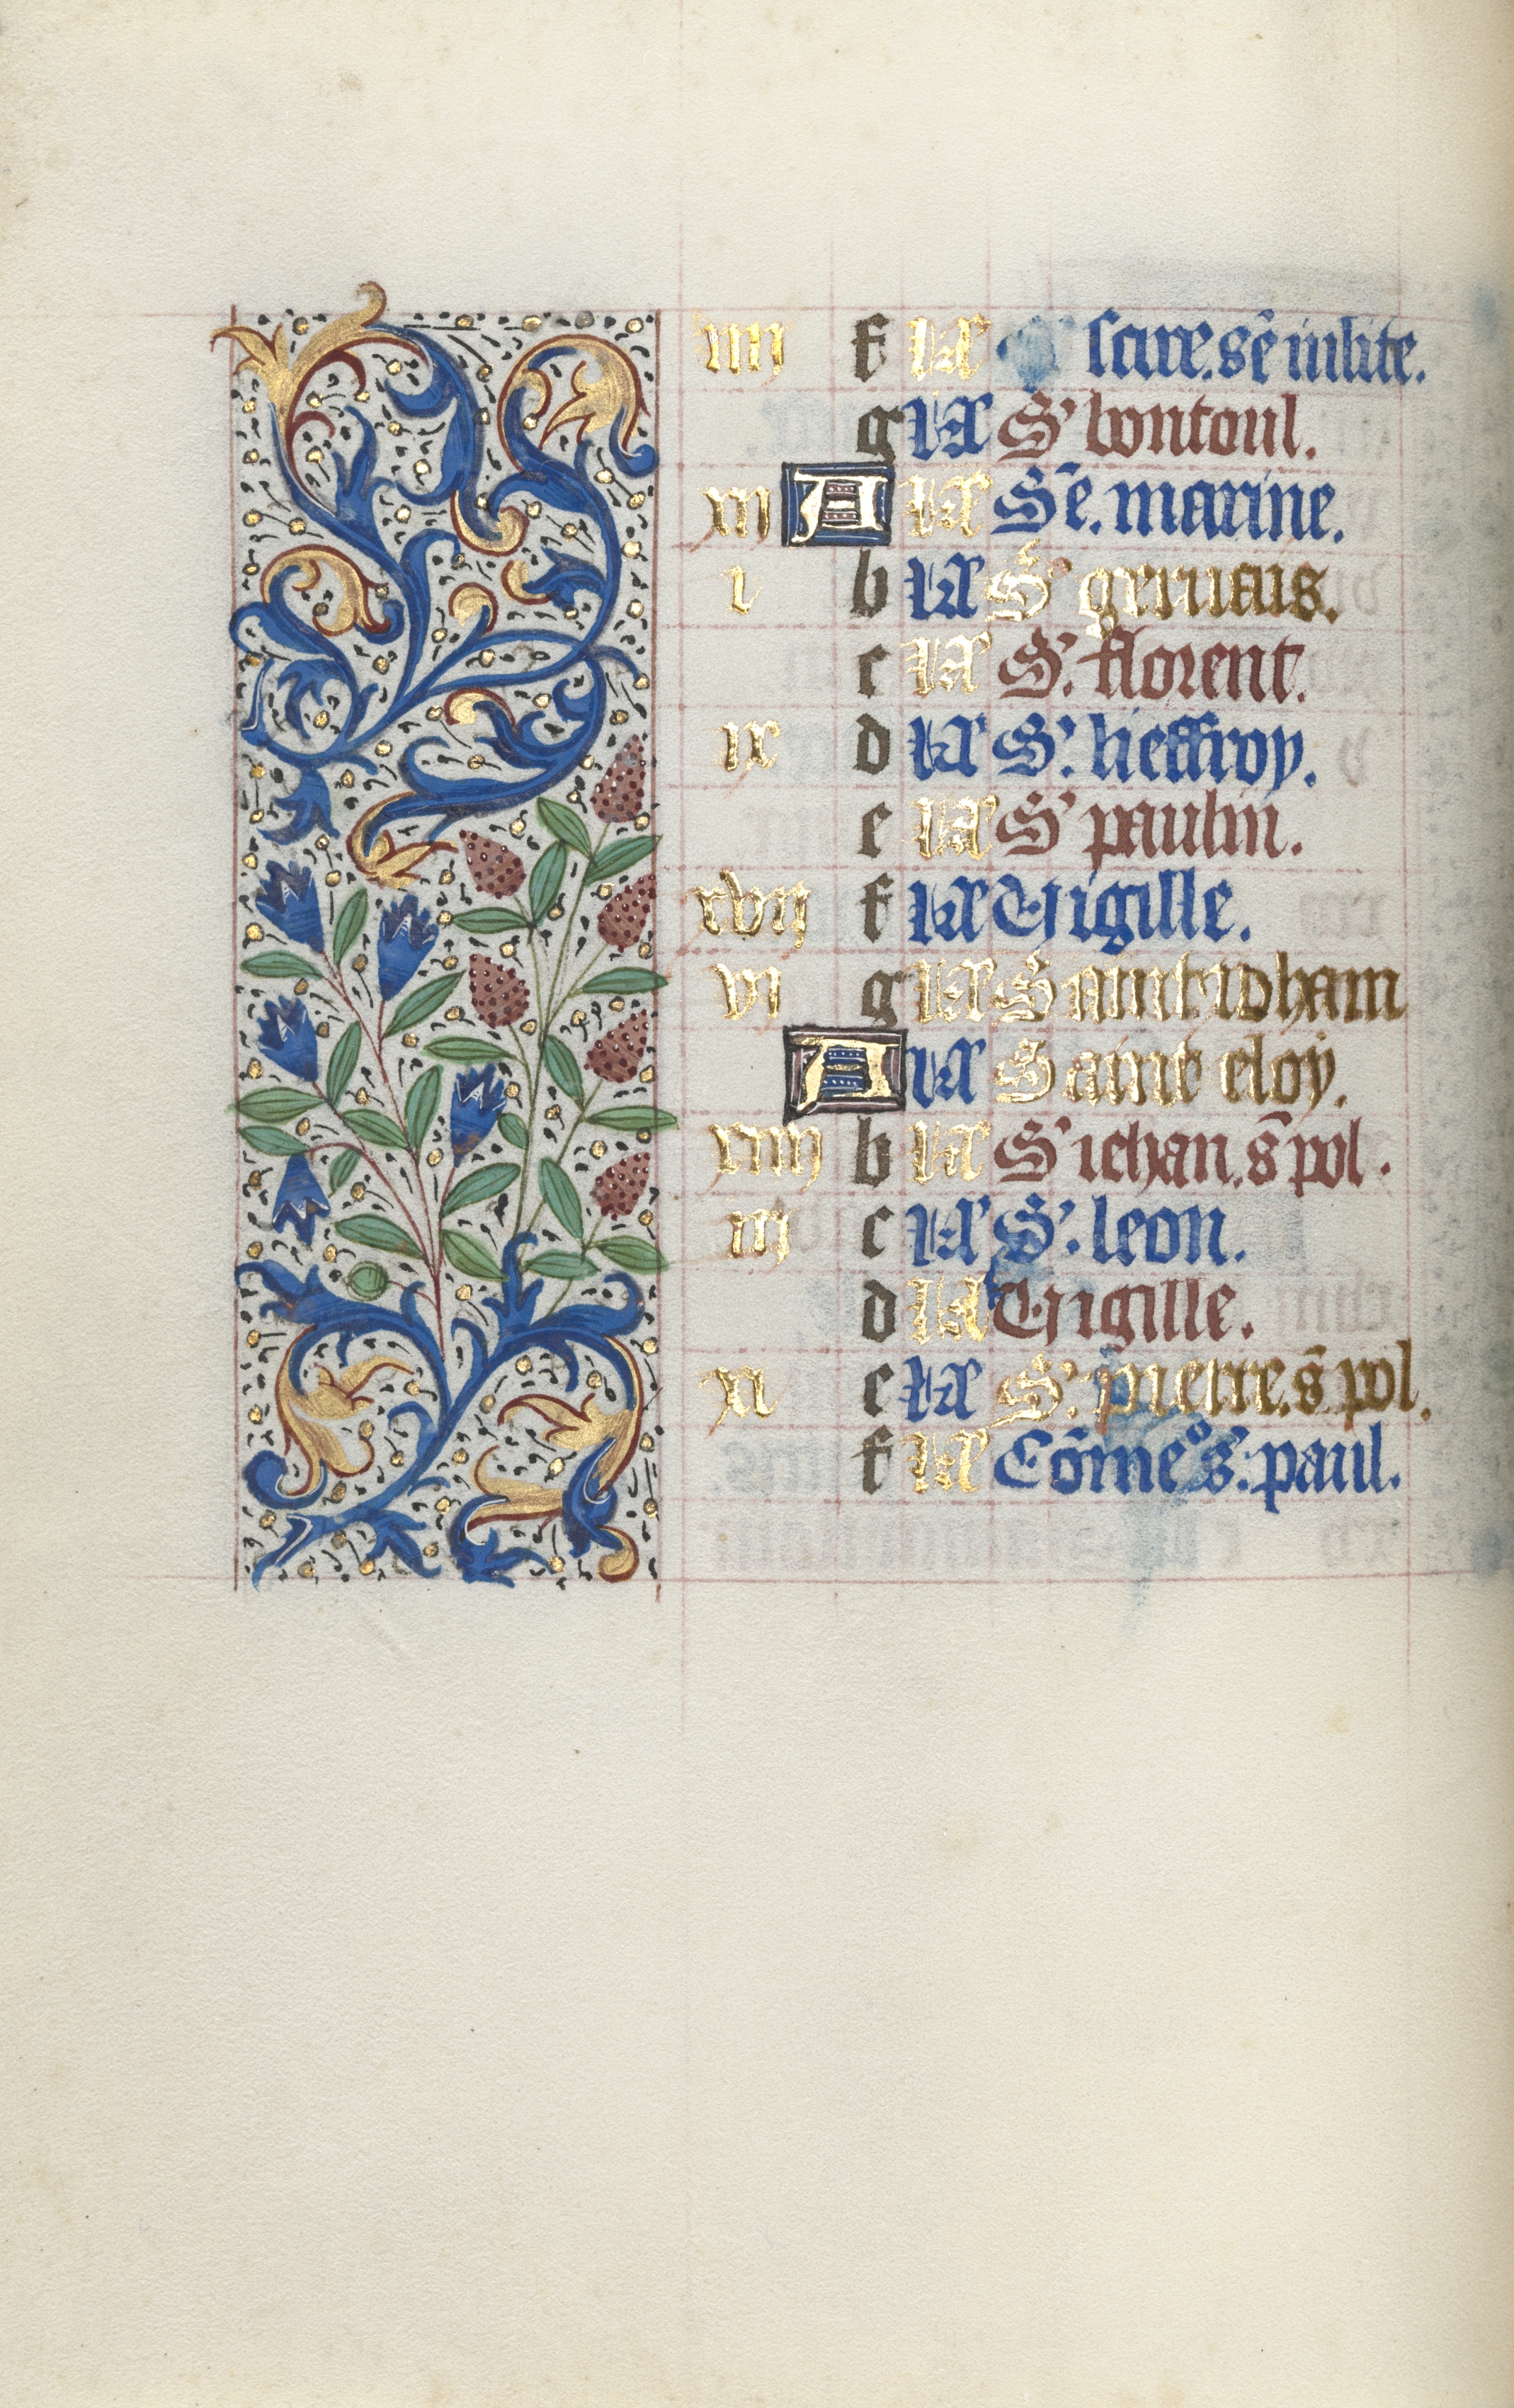 iiii f kł S' cire. sē iulite.
g kł S' bontoul.
xii A kł Sē. marine.
i b kł S' geruais.
c kł S'. florent.
ix d kł S'. lieffroy.
e kł S' paulin.
xvii f kł Vigille.
vi g kł Saint iehan
A kł Saint eloy.
xiiii b kł S' iehan. s̄ pol.
iii c kł S'. leon.
d kł Vigille.
xi e kł S'. pierre. s̄ pol.
f kł Cōme° s'. paul.